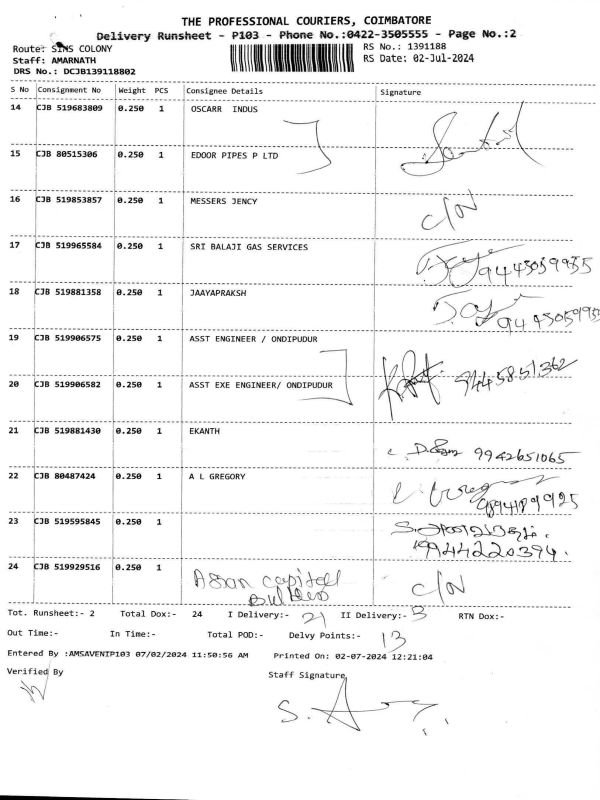 THE PROFESSIONAL COURIERS, COIMBATORE
Delivery Runsheet - P103 - Phone No.:0422-3505555 - Page No.:2
Route: SINS COLONY
RS No.: 1391188
Staff: AMARNATH
RS Date: 02-Jul-2024
DRS No.: DCJB139118802
S No Consignment No Weight PCS Consignee Details Signature
14 CJB 519683809 0.250 1 OSCARR INDUS
15 CJB 80515306 0.250 1 EDOOR PIPES P LTD
16 CJB 519853857 0.250 1 MESSERS JENCY C/N
17 CJB 519965584 0.250 1 SRI BALAJI GAS SERVICES 9445059955
18 CJB 519881358 0.250 1 JAAYAPRAKSH
19 CJB 519906575 0.250 1 ASST ENGINEER / ONDIPUDUR
20 CJB 519906582 0.250 1 ASST EXE ENGINEER/ ONDIPUDUR 9445851362
21 CJB 519881430 0.250 1 EKANTH 9942651065
22 CJB 80487424 0.250 1 A L GREGORY
23 CJB 519595845 0.250 1
9944220394.
24 CJB 519929516 0.250 1 Asian capital C/N
Tot. Runsheet:- 2 Total Dox:- 24 I Delivery:- 21 II Delivery:- 3 RTN Dox:-
Out Time:- In Time:- Total POD:- Delvy Points:- 13
Entered By :AMSAVENIP103 07/02/2024 11:50:56 AM Printed On: 02-07-2024 12:21:04
Verified By
Staff Signature